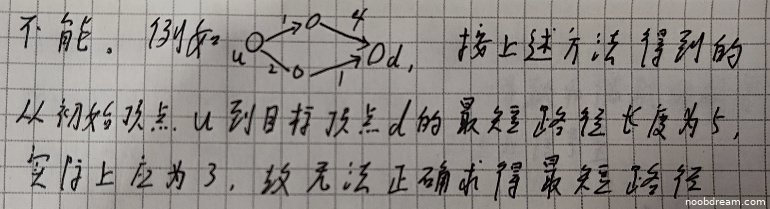 不能。例如: u 1 4 2 1 d, 按上述方法得到的
从初始顶点u到目标顶点d的最短路径长度为5,
实际上应为3,故无法正确求得最短路径
noobdream.com